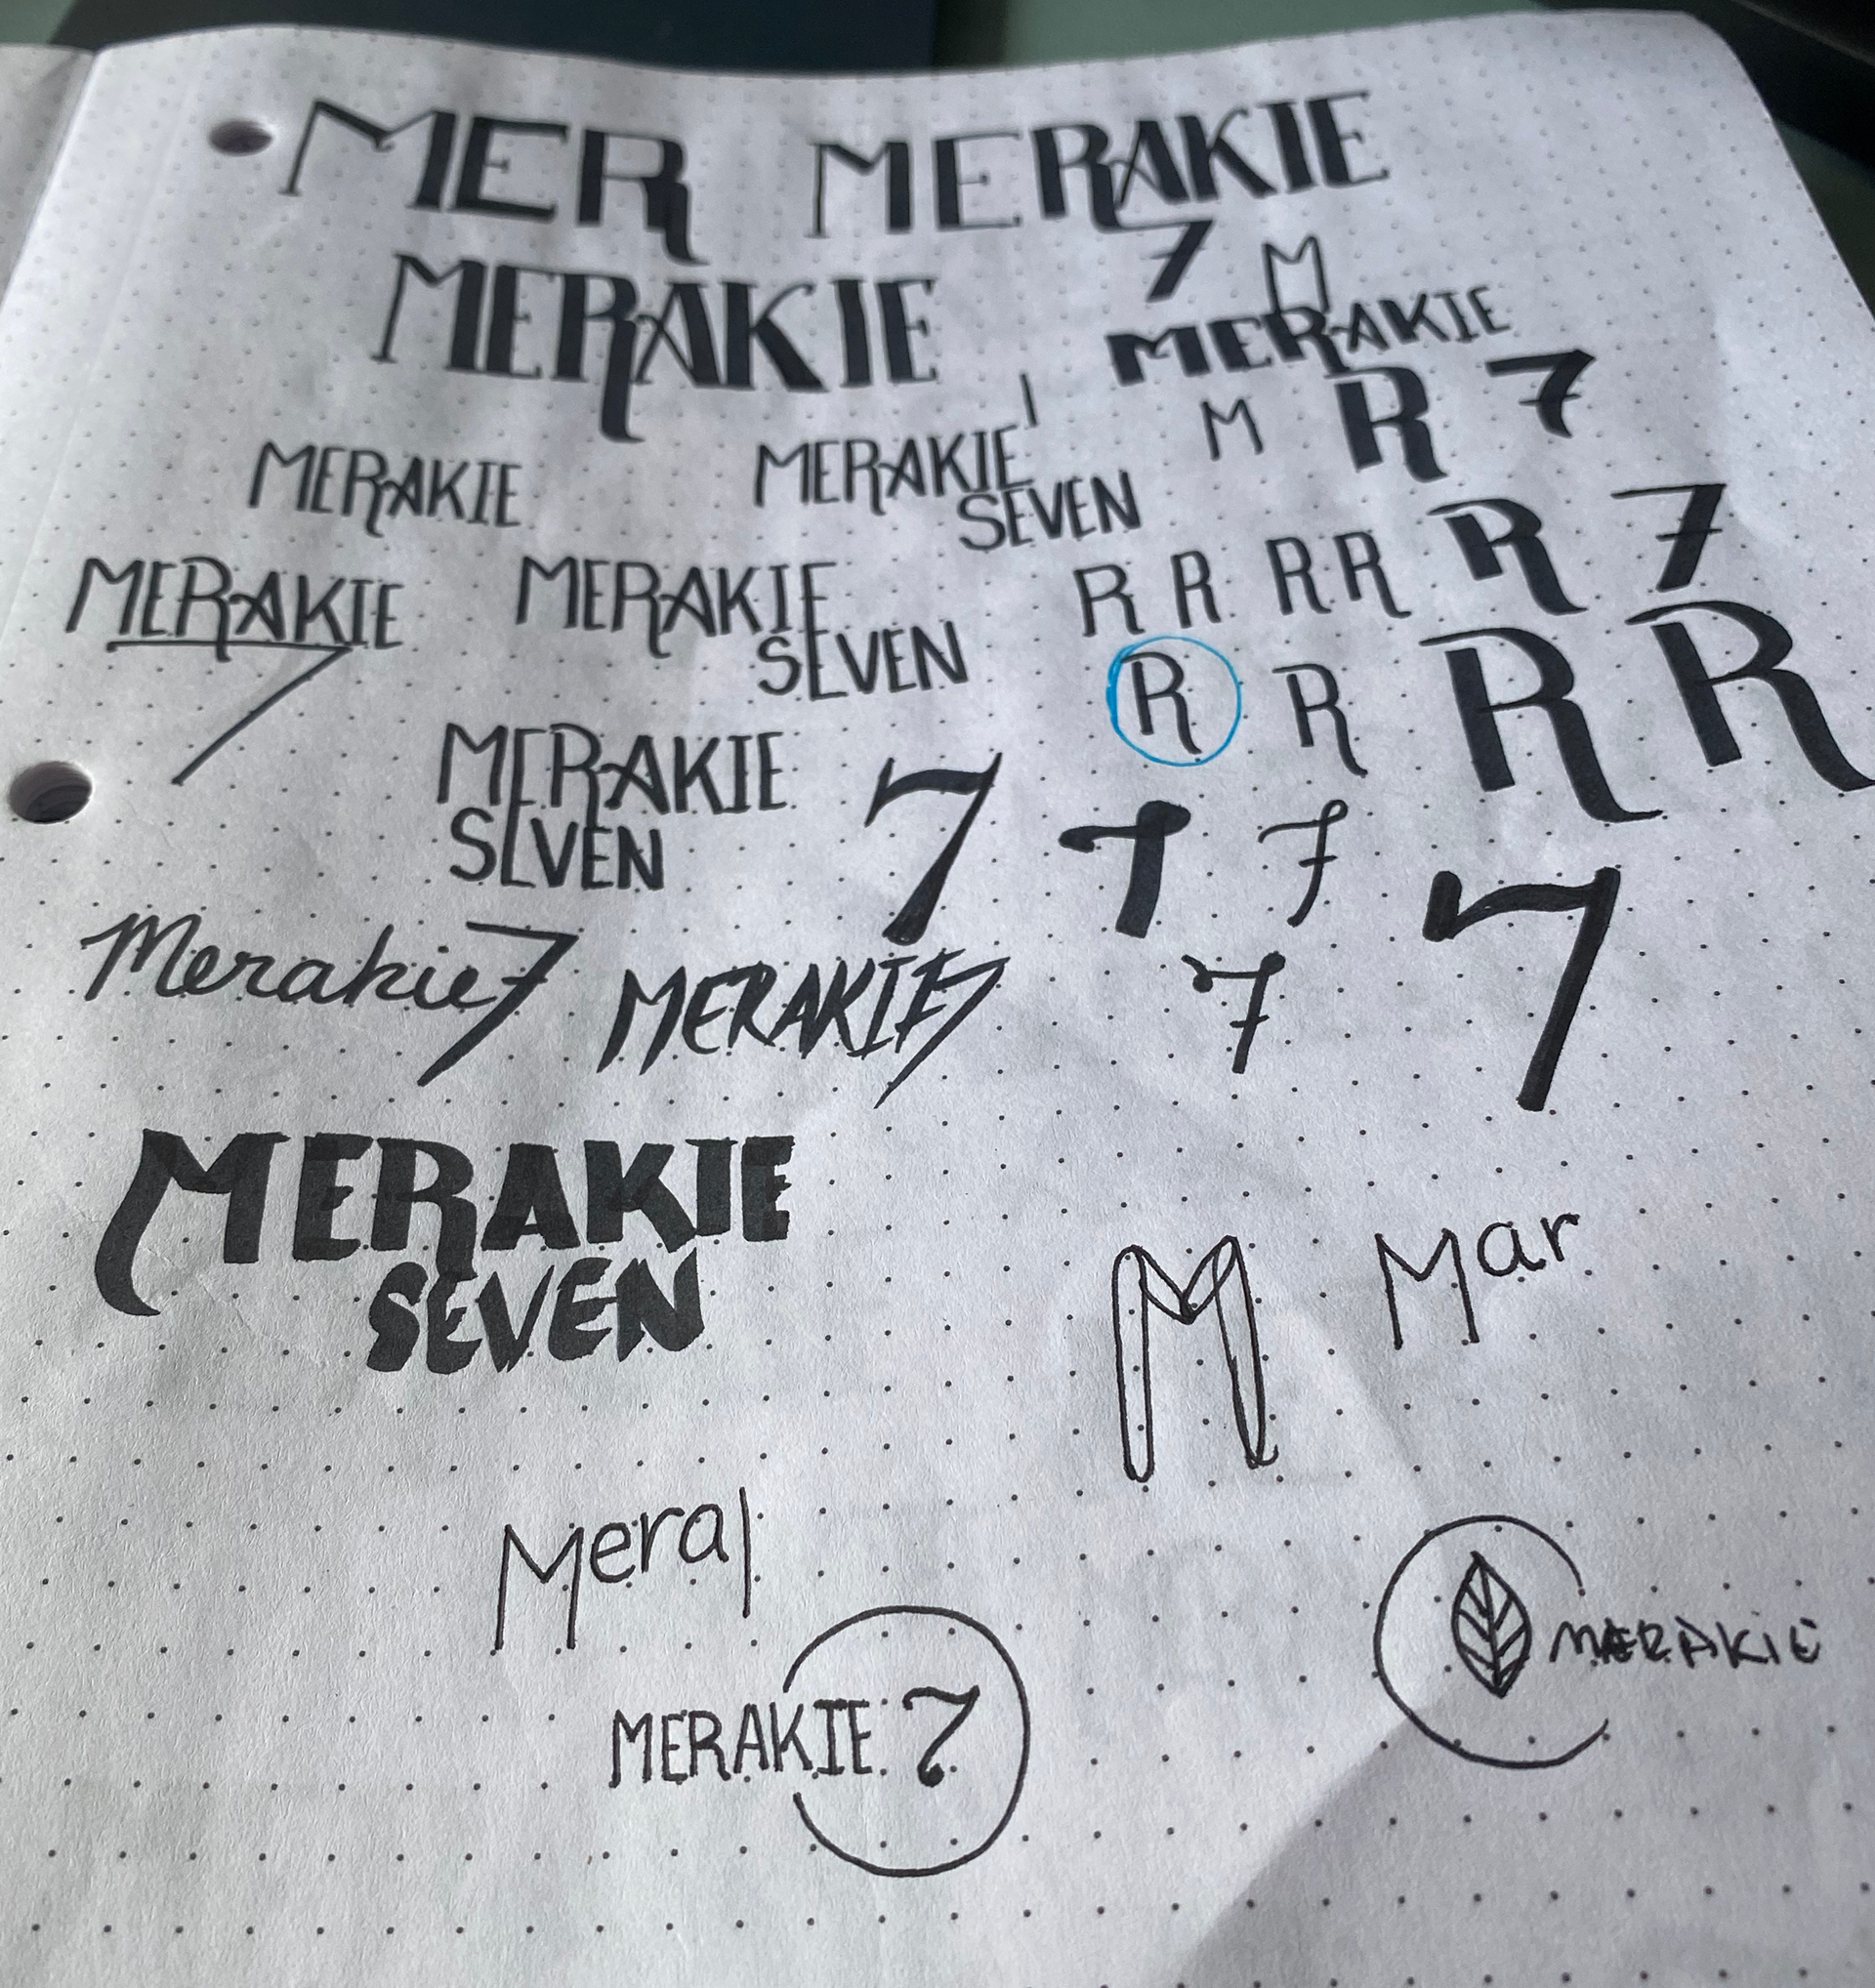 MER MERAKIE
7 M
MERAKIE MERAKIE
M R 7
MERAKIE MERAKIE
SEVEN
R R R R R 7
MERAKIE MERAKIE
SEVEN
R R R R
MERAKIE
SEVEN
7 7 7
Merakie7 MERAKIE7
7 7
MERAKIE
SEVEN
M Mar
Mera
MERAKIE 7
MERAKIE